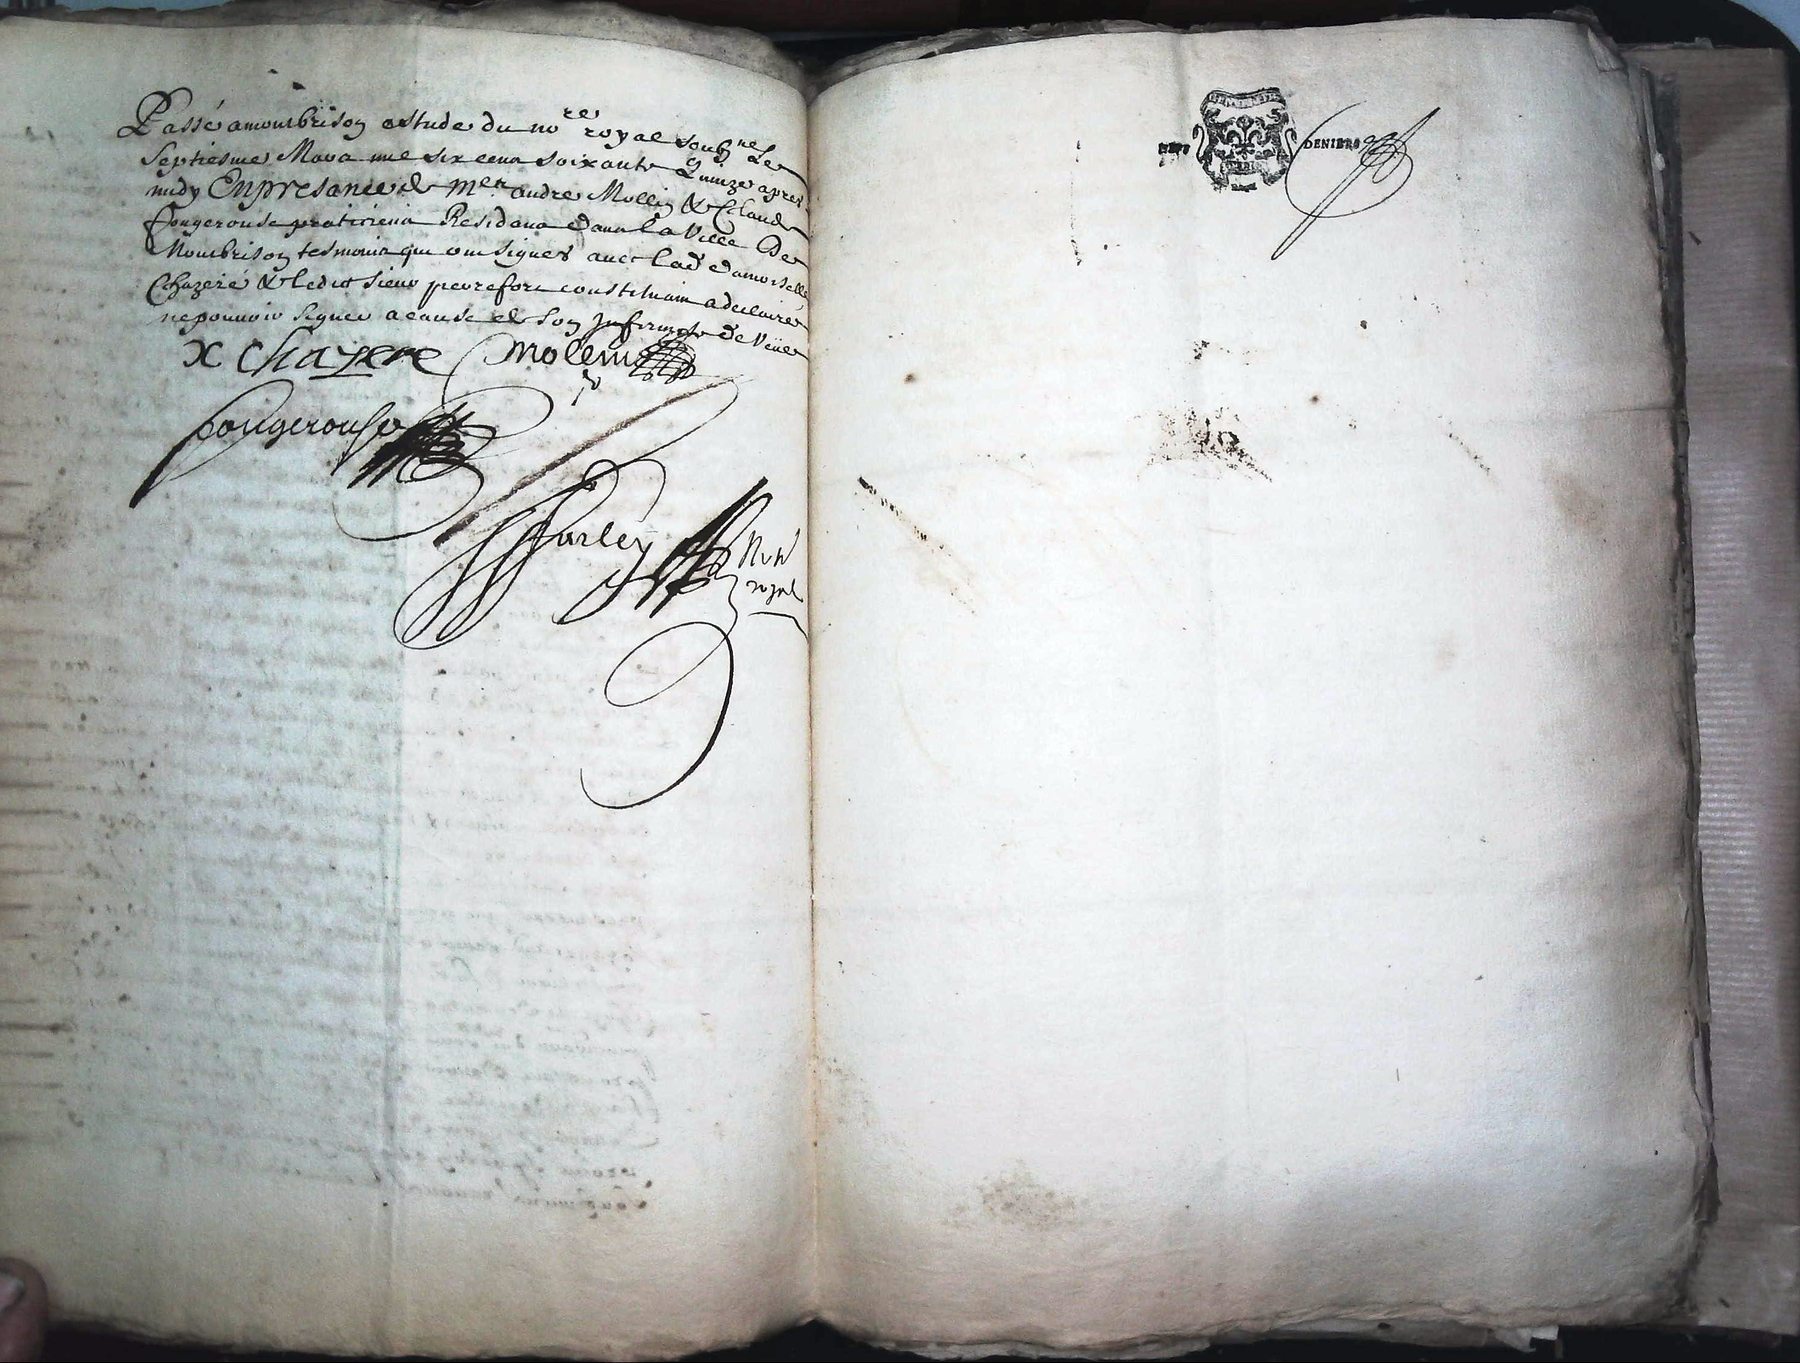 Passé a montbrison estude du no.re royal soubz.né Le
septiesme Mars mil six cens soixante quinze apres
midy En presance de M.en andre Mollin & Claude
fougerouse praticiens Residans dans la Ville De
Montbrison tesmoins qui ont signés avec lad damoiselle
Chazere & ledict sieur constituant a declairé
ne pouvoir signer a cause de son infirmité de Veüe
x Chazere Molein
fougerouse
Not
royal
DENIERS